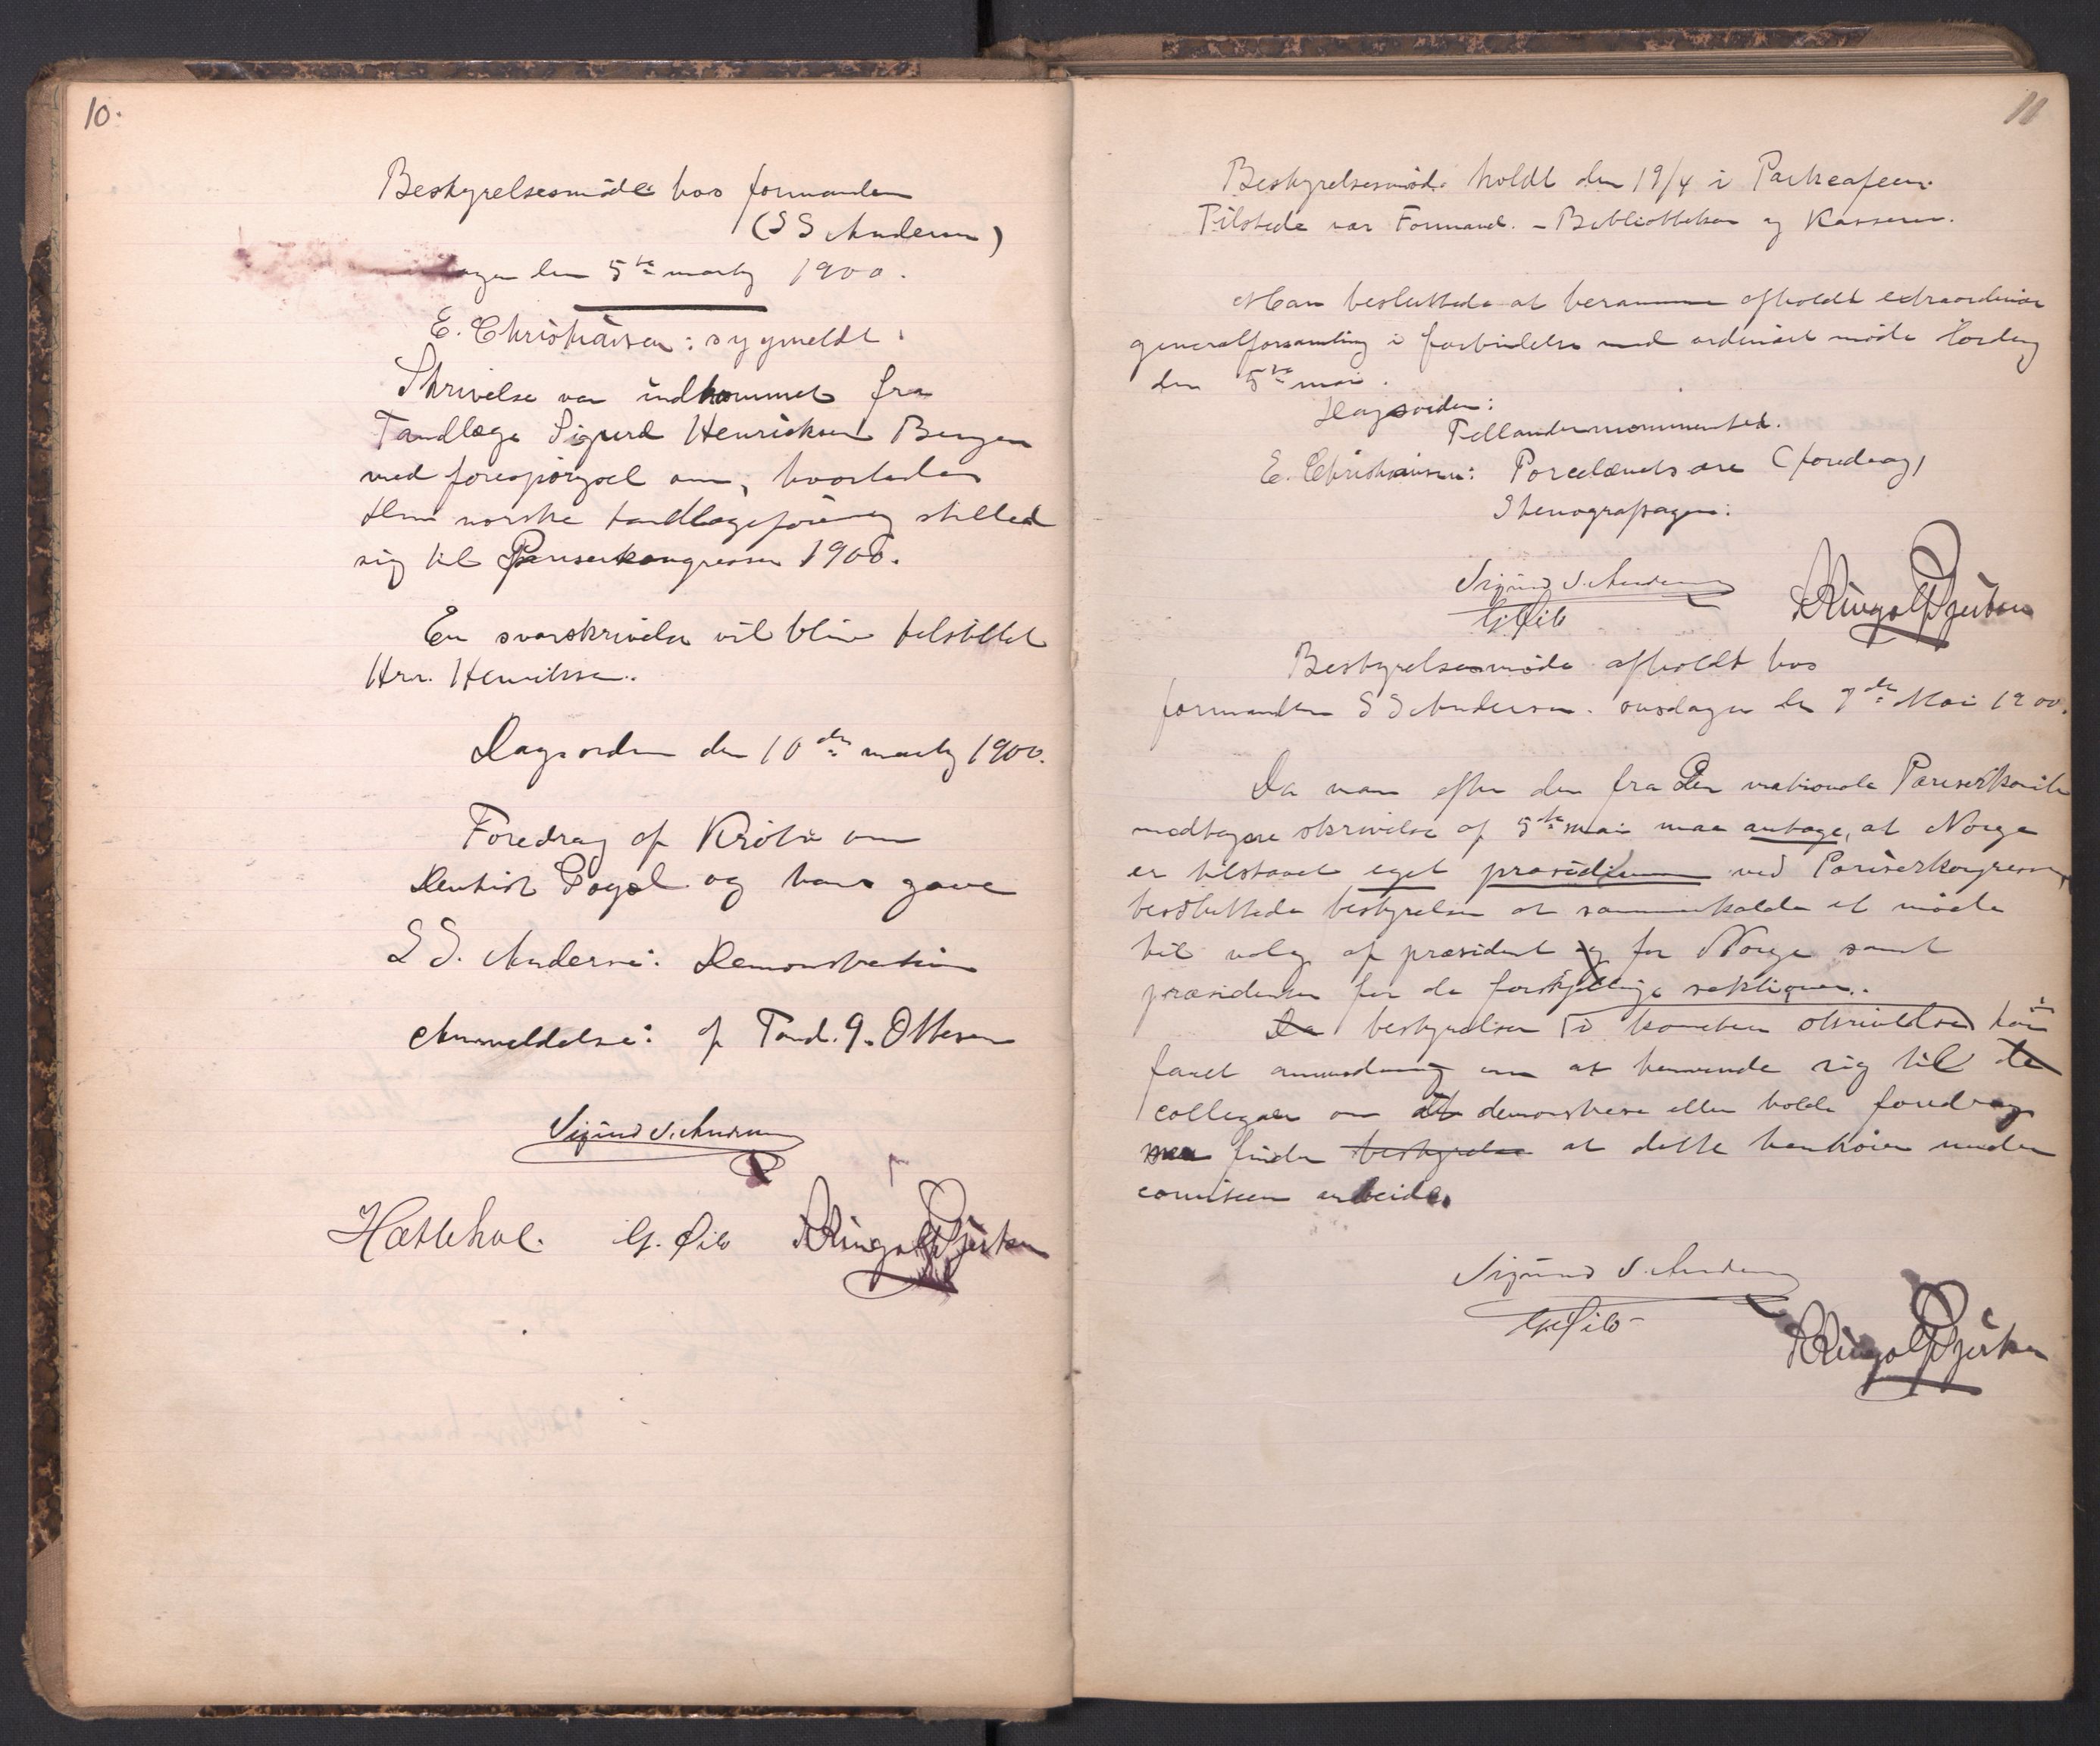 10.
Bestyrelsesmöde hos formanden
(S S Andersen)
den 5te marts 1900.
E. Christiansen: sygmeldt.
Skrivelse var indkommet fra
Tandlæge Sigurd Henriksen Bergen
med forespörgsel om, hvorledes
Den norske tandlægeforening stilled
sig til Pariserkongressen 1900.
En svarskrivelse vil blive tilstillet
Hrr. Henriksen.
Dagsorden den 10de marts 1900.
Foredrag af om
Dentist og hans gave
S S. Andersen: Demonstration
Anmeldelse: af Tand. 9. Ottesen
Sigurd S. Andersen
Hattehol. G. Öilo
11
Bestyrelsesmöde holdt den 19/4 i Parkcafeen.
Tilstede var Formand. - Bibliothekar og Kasserer.
Man besluttede at beramme afholdt extraordinær
generalforsamling i forbindelse med ordinært möde lördag
den 5te mai.
Dagsorden:
Tellandermonumentet.
E. Christiansen: Porcelænets ære (foredrag)
Stenografsagen:
Sigurd S. Andersen
G. Öilo
Bestyrelsesmöde afholdt hos
formanden S S Andersen. onsdagen den 9de Mai 1900.
Da man efter den fra Den nationale Pariserkomite
modtagne skrivelse af 5te mai maa antage, at Norge
er tilstaaet eget præsidium ved Pariserkongressen,
besluttede bestyrelsen at sammenkalde et möde
til valg af præsident og for Norge samt
præsidenter for de forskjellige sektioner.
Da bestyrelsen i komiteen skrivelse har
faaet anmodning om at henvende sig til de
collegaer om at demonstrere eller holde foredrag
men finder bestyrelse at dette henhörer under
comiteen arbeide.
Sigurd S. Andersen
G. Öilo